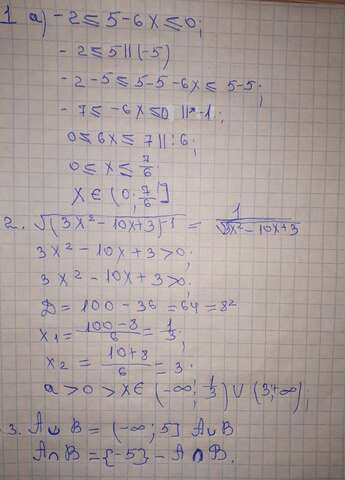 1 а) -2 ≤ 5 - 6x ≤ 0;
-2 ≤ 5 || (-5)
-2 - 5 ≤ 5 - 5 - 6x ≤ 5 - 5;
-7 ≤ -6x ≤ 0 || * -1;
0 ≤ 6x ≤ 7 || : 6;
0 ≤ x ≤ 7/6;
x ∈ (0; 7/6]
2. √(3x² - 10x + 3)⁻¹ = 1/√3x² - 10x + 3
3x² - 10x + 3 > 0;
3x² - 10x + 3 > 0;
D = 100 - 36 = 64 = 8²
x₁ = 100 - 8/6 = 1/3;
x₂ = 10 + 8/6 = 3;
a > 0 > x ∈ (-∞; 1/3) ∪ (3; +∞);
3. A ∪ B = (-∞; 5] A ∪ B
A ∩ B = {-5} - A ∩ B.